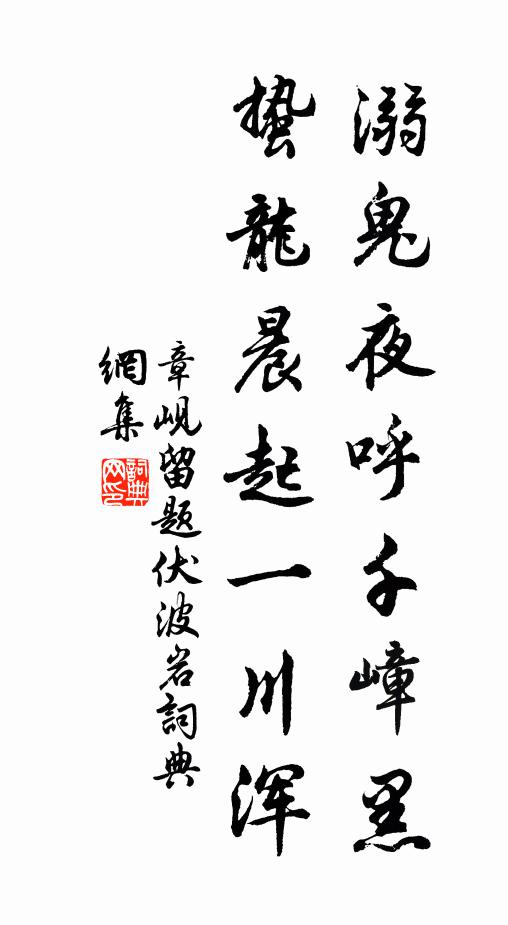 溺鬼夜呼千嶂黑
蛰龍晨起一川浑
章岘留题伏波岩詞典
網集
詞典
网印